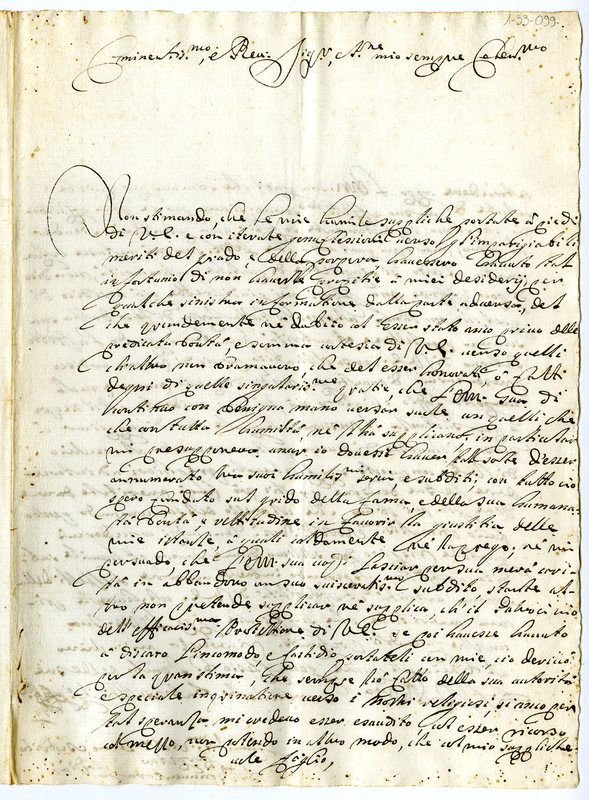 1-33-099.
Eminentis.mo, e Rev. Sig.r, e mio sempre
Non stimando, che le mie humile suppliche portate à piedi
di V.E. e con iterate genuflessioni verso gl'impatigiabili
meriti del grado, e della porpora havessero havuto tal
infortunio di non haverle propitie à miei desiderij, per
qualche sinistra informatione dalla parte adversa, del
che grandemente né dubito col esser stato privo delle
predicata bontà, e somma cortesia di V.E. verso quelli
ch'altro non bramavano, che del esser honorati, ò fatti
degni di quelle singularis.me gratie, che l'Em. Sua di
continuo con benigna mano versar suole in quelli che
che con tutta humiltà, né l'hà supplicano, in particular
mi presupponeva, anchor io dovessi haver tal sorte d'esser
annumerato tra suoi humilis.mi servi, e subditi, con tutto ciò
spero guidato sul grido della fama, e della sua humana
bontà e rettitudine in favorir la giustitia delle
mie istante, à quali caldamente né la prego, né mi
persuado, che l'Em. sua lasciar per sua mera cari
tà in abbandono un suo suisceratis.mo subdito, stante al
tro non pretende supplicar né supplica, ch'il patrocinio
dell'efficacis.ma Protettione di V.E. se poi havesse havuto
à discaro l'incomodo, e fastidio portateli con mie, ciò derivò
per la gran stima, che sempre hò fatto della sua autorità
e speciale inclinatione verso i nostri religiosi, si anco per
tal speranza, mi credevo esser esaudito col esser ricorso
col messo, non potendo in altro modo, che col mio suppliche-
vole foglio,